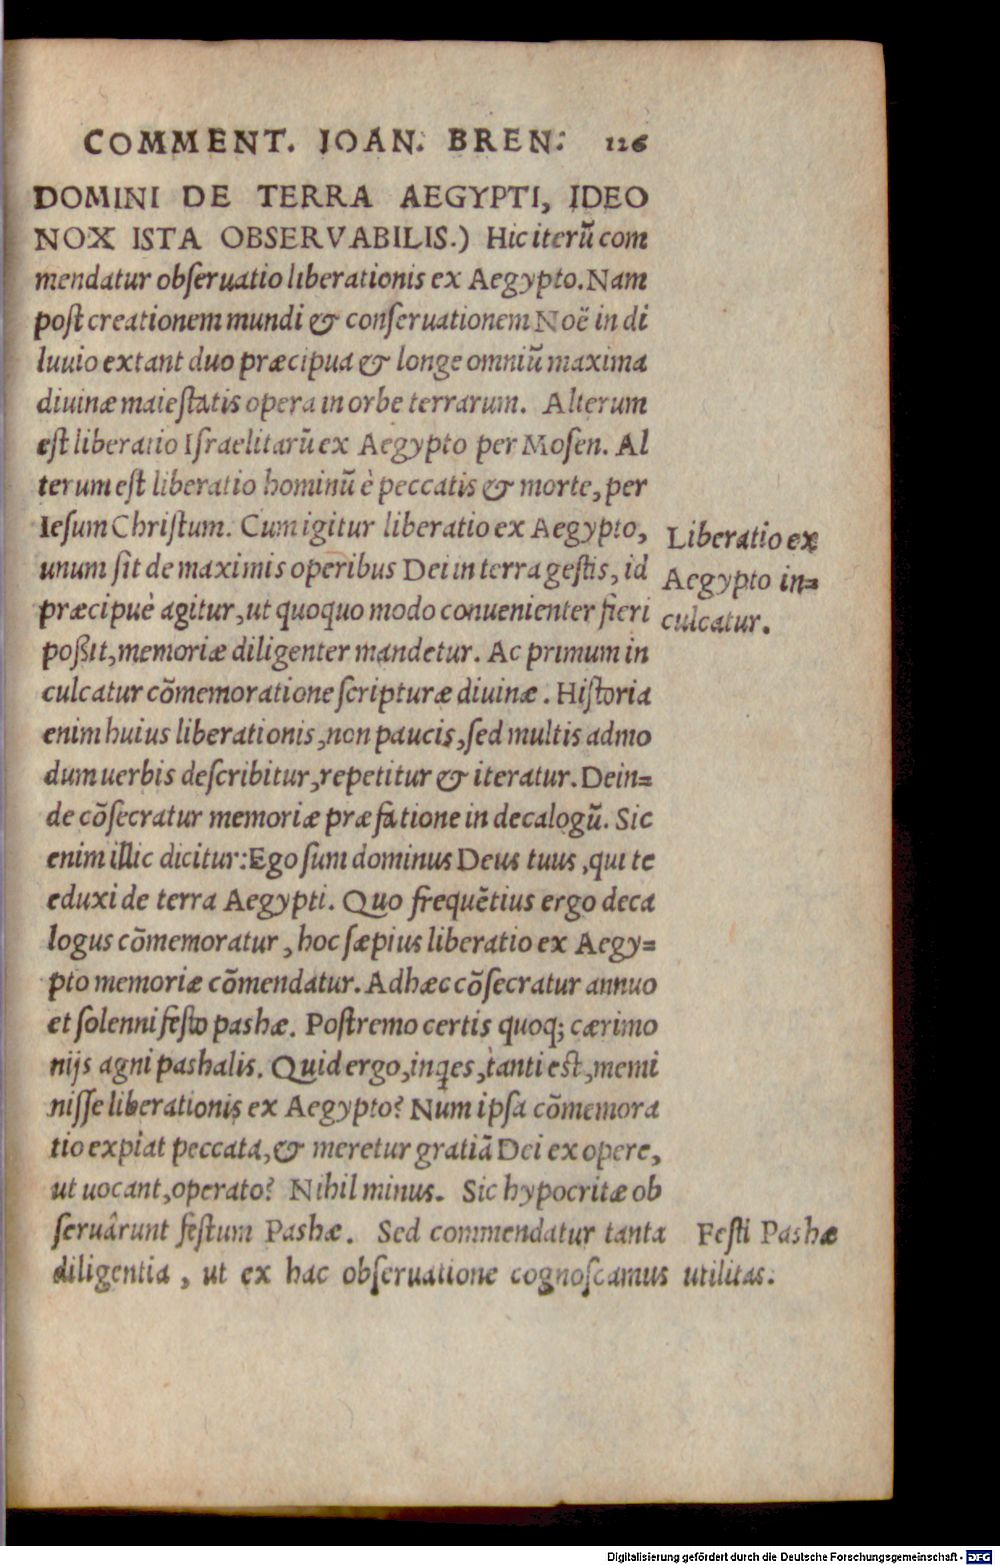 COMMENT. IOAN. BREN. 126
DOMINI DE TERRA AEGYPTI, IDEO
NOX ISTA OBSERVABILIS.) Hic iterũ com
mendatur obſeruatio liberationis ex Aegypto. Nam
poſt creationem mundi & conſeruationem Noë in di
luuio extant duo præcipua & longe omniũ maxima
diuinæ maieſtatis opera in orbe terrarum. Alterum
eſt liberatio Iſraelitarũ ex Aegypto per Moſen. Al
terum eſt liberatio hominũ è peccatis & morte, per
Ieſum Chriſtum. Cum igitur liberatio ex Aegypto,
unum ſit de maximis operibus Dei in terra geſtis, id
præcipuè agitur, ut quoquo modo conuenienter fieri
poßit, memoriæ diligenter mandetur. Ac primum in
culcatur cõmemoratione ſcripturæ diuinæ. Hiſtoria
enim huius liberationis, non paucis, ſed multis admo
dum uerbis deſcribitur, repetitur & iteratur. Dein=
de cõſecratur memoriæ præfatione in decalogũ. Sic
enim illic dicitur: Ego ſum dominus Deus tuus, qui te
eduxi de terra Aegypti. Quo frequẽtius ergo deca
logus cõmemoratur, hoc ſæpius liberatio ex Aegy=
pto memoriæ cõmendatur. Adhæc cõſecratur annuo
et ſolenni feſto pashæ. Poſtremo certis quoq; cærimo
nijs agni pashalis. Quid ergo, inq̃es, tanti est, memi
niſſe liberationis ex Aegypto? Num ipſa cõmemora
tio expiat peccata, & meretur gratiã Dei ex opere,
ut uocant, operato? Nihil minus. Sic hypocritæ ob
ſeruârunt feſtum Pashæ. Sed commendatur tanta
diligentia, ut ex hac obſeruatione cognoſcamus
Liberatio ex
Aegypto in=
culcatur.
Feſti Pashæ
utilitas.
Digitalisierung gefördert durch die Deutsche Forschungsgemeinschaft - DFG